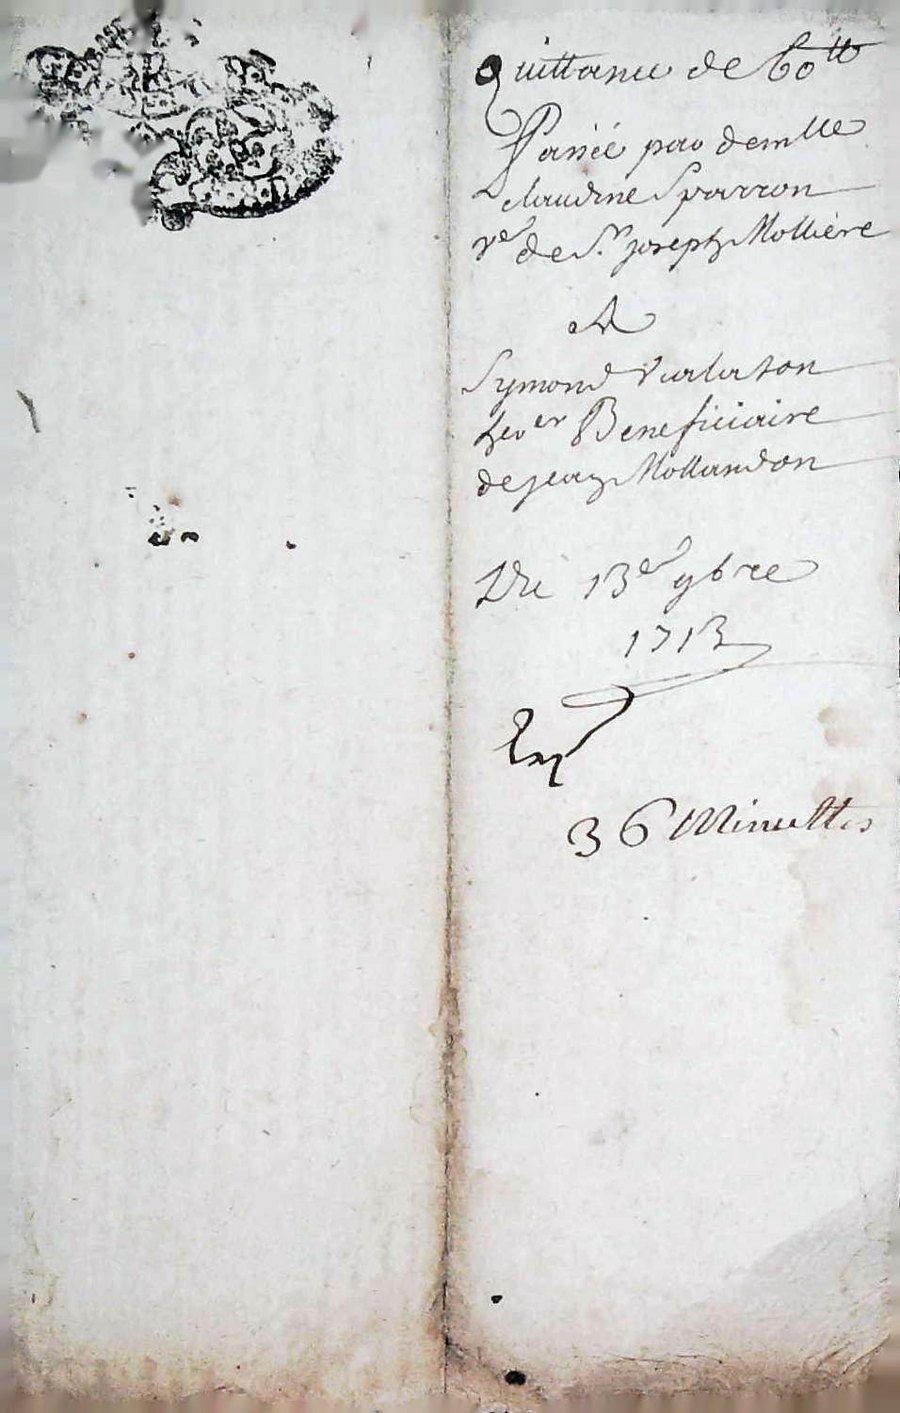 Quittance de 60 tt
Passée par demlle
claudine Sparron
ve de Sr. joseph Mollière
A
Symond Vialaton
her Beneficiaire
de jean Mollandon
Du 13e 9bre
1713
36 Minuttes